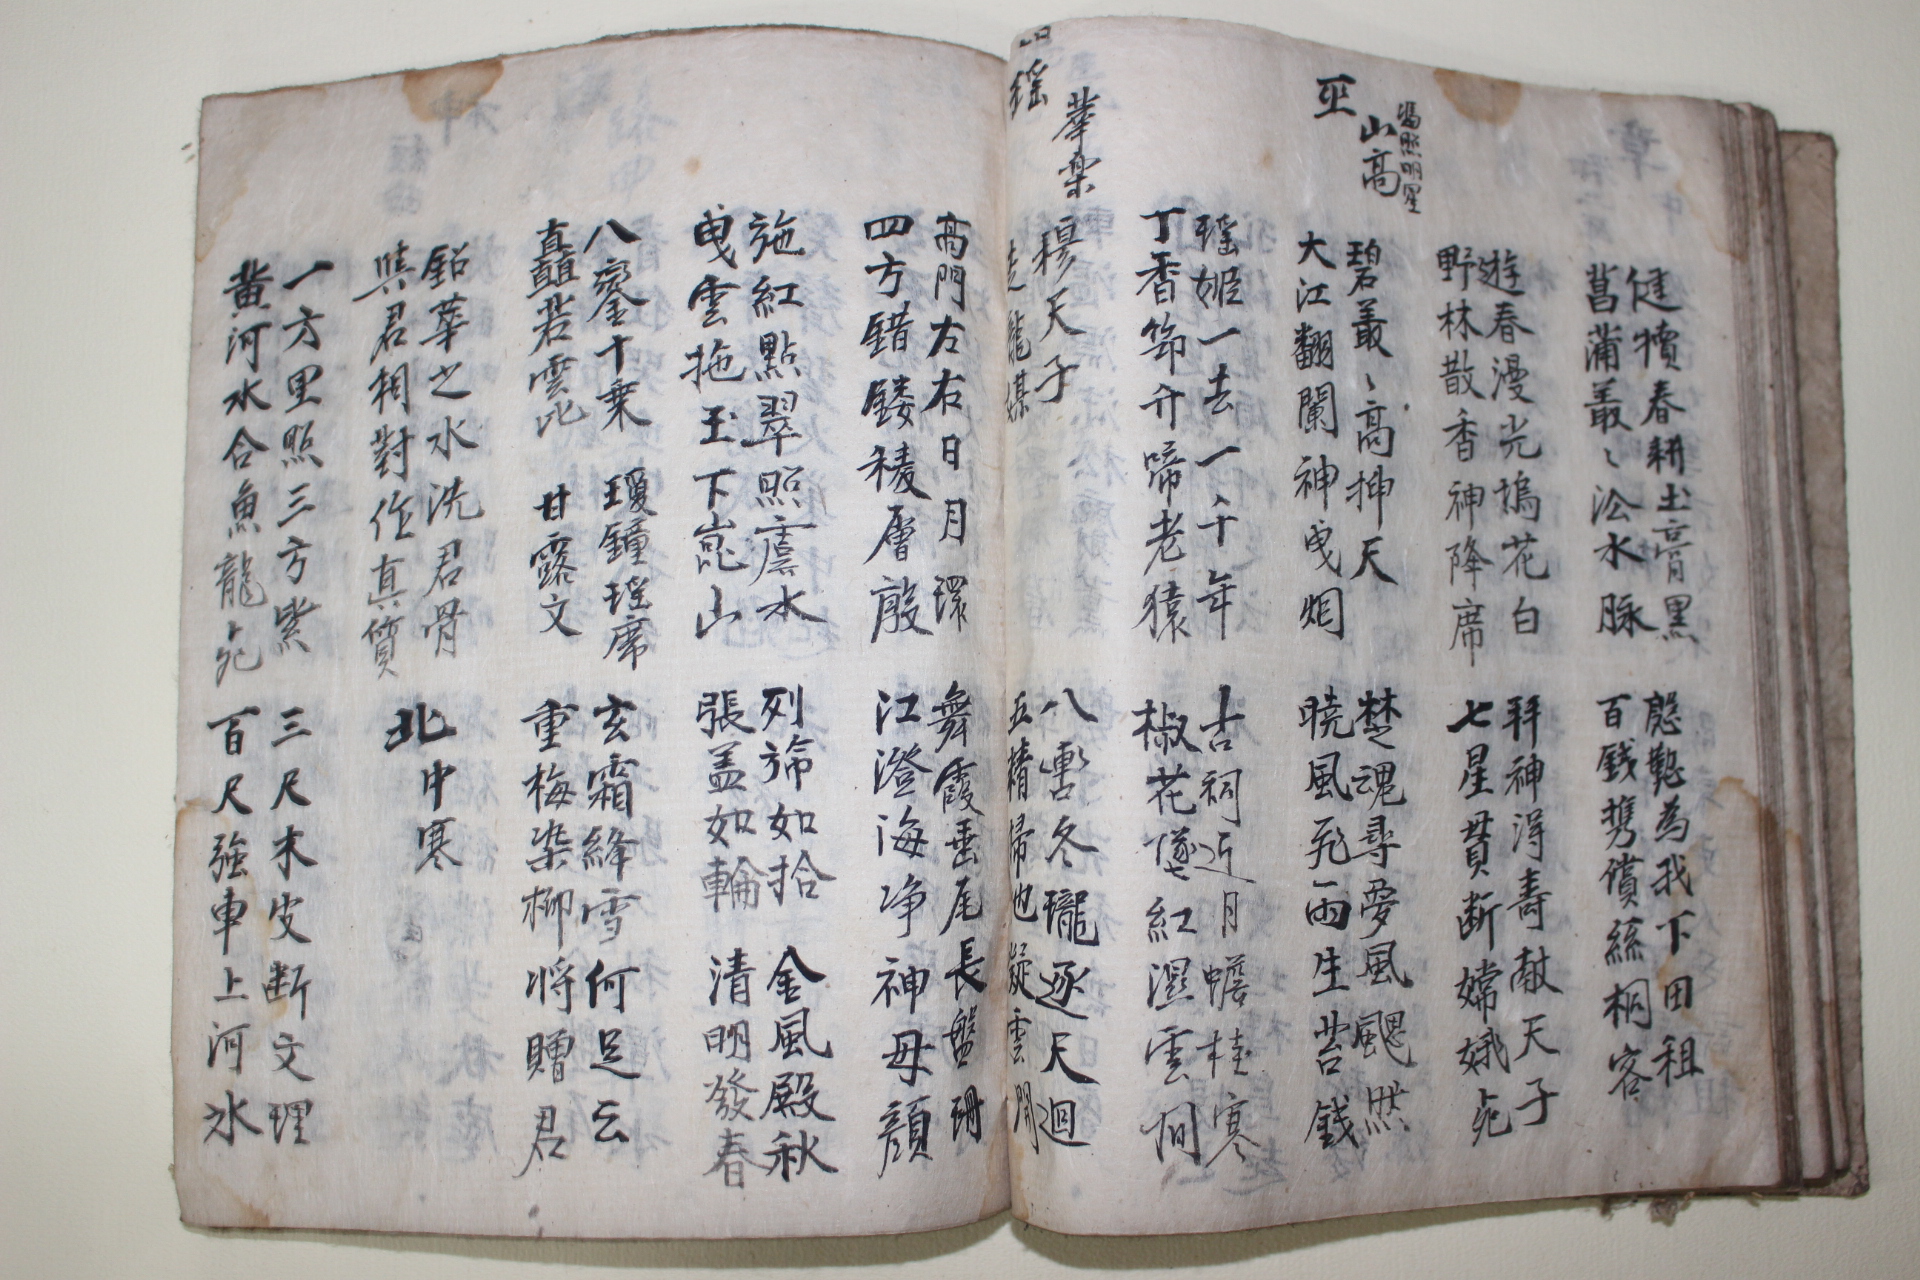 健犢春耕土膏黑
菖蒲叢〻沿水脉
慇懃為我下田租
百銭携償絲桐客
遊春漫光塢花白
野林散香神降席
拜神得壽献天子
七星貫断嫦娥死
巫山高
碧叢〻高挿天
大江翻瀾神曳烟
楚魂尋夢風颸然
暁風飛雨生苔銭
瑶姬一去一千年
丁香筇竹啼老猿
古祠近月蟾桂寒
椒花墜紅濕雲間
瑶華楽
穆天子
走龍媒
八轡冬瓏逐天迴
五精帰地凝雲開
高門左右日月環
四方錯鏤稜層殷
舞霞垂尾長盤珊
江澄海浄神母顔
施紅點翠照虞水
曳雲拖玉下崑山
列旆如拾
張盖如輪
金風殿秋
清明發春
八鑾十乗
矗若雲屯
瓊鐘瑶席
甘露文
玄霜絳雪何足云
重梅染柳将贈君
鉛華之水洗君骨
與君相對作真質
北中寒
一方里照三方紫
黄河水合魚龍死
三尺木皮断文理
百尺強車上河水